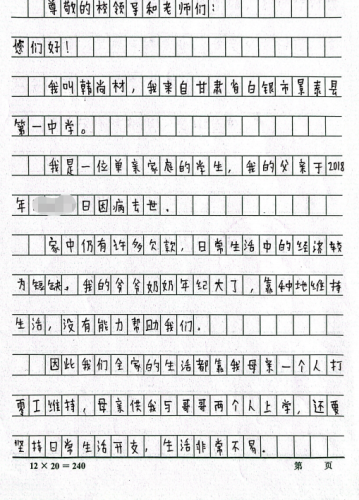 尊敬的校领导和老师们：
您们好！
我叫韩尚材，我来自甘肃省白银市景泰县
第一中学。
我是一位单亲家庭的学生，我的父亲于2018
年 日因病去世。
家中仍有许多欠款，日常生活中的经济较
为短缺。我的爷爷奶奶年纪大了，靠种地维持
生活，没有能力帮助我们。
因此我们全家的生活都靠我母亲一个人打
零工维持，母亲供我与哥哥两个人上学，还要
坚持日常生活开支，生活非常不易。
12×20=240 第 页